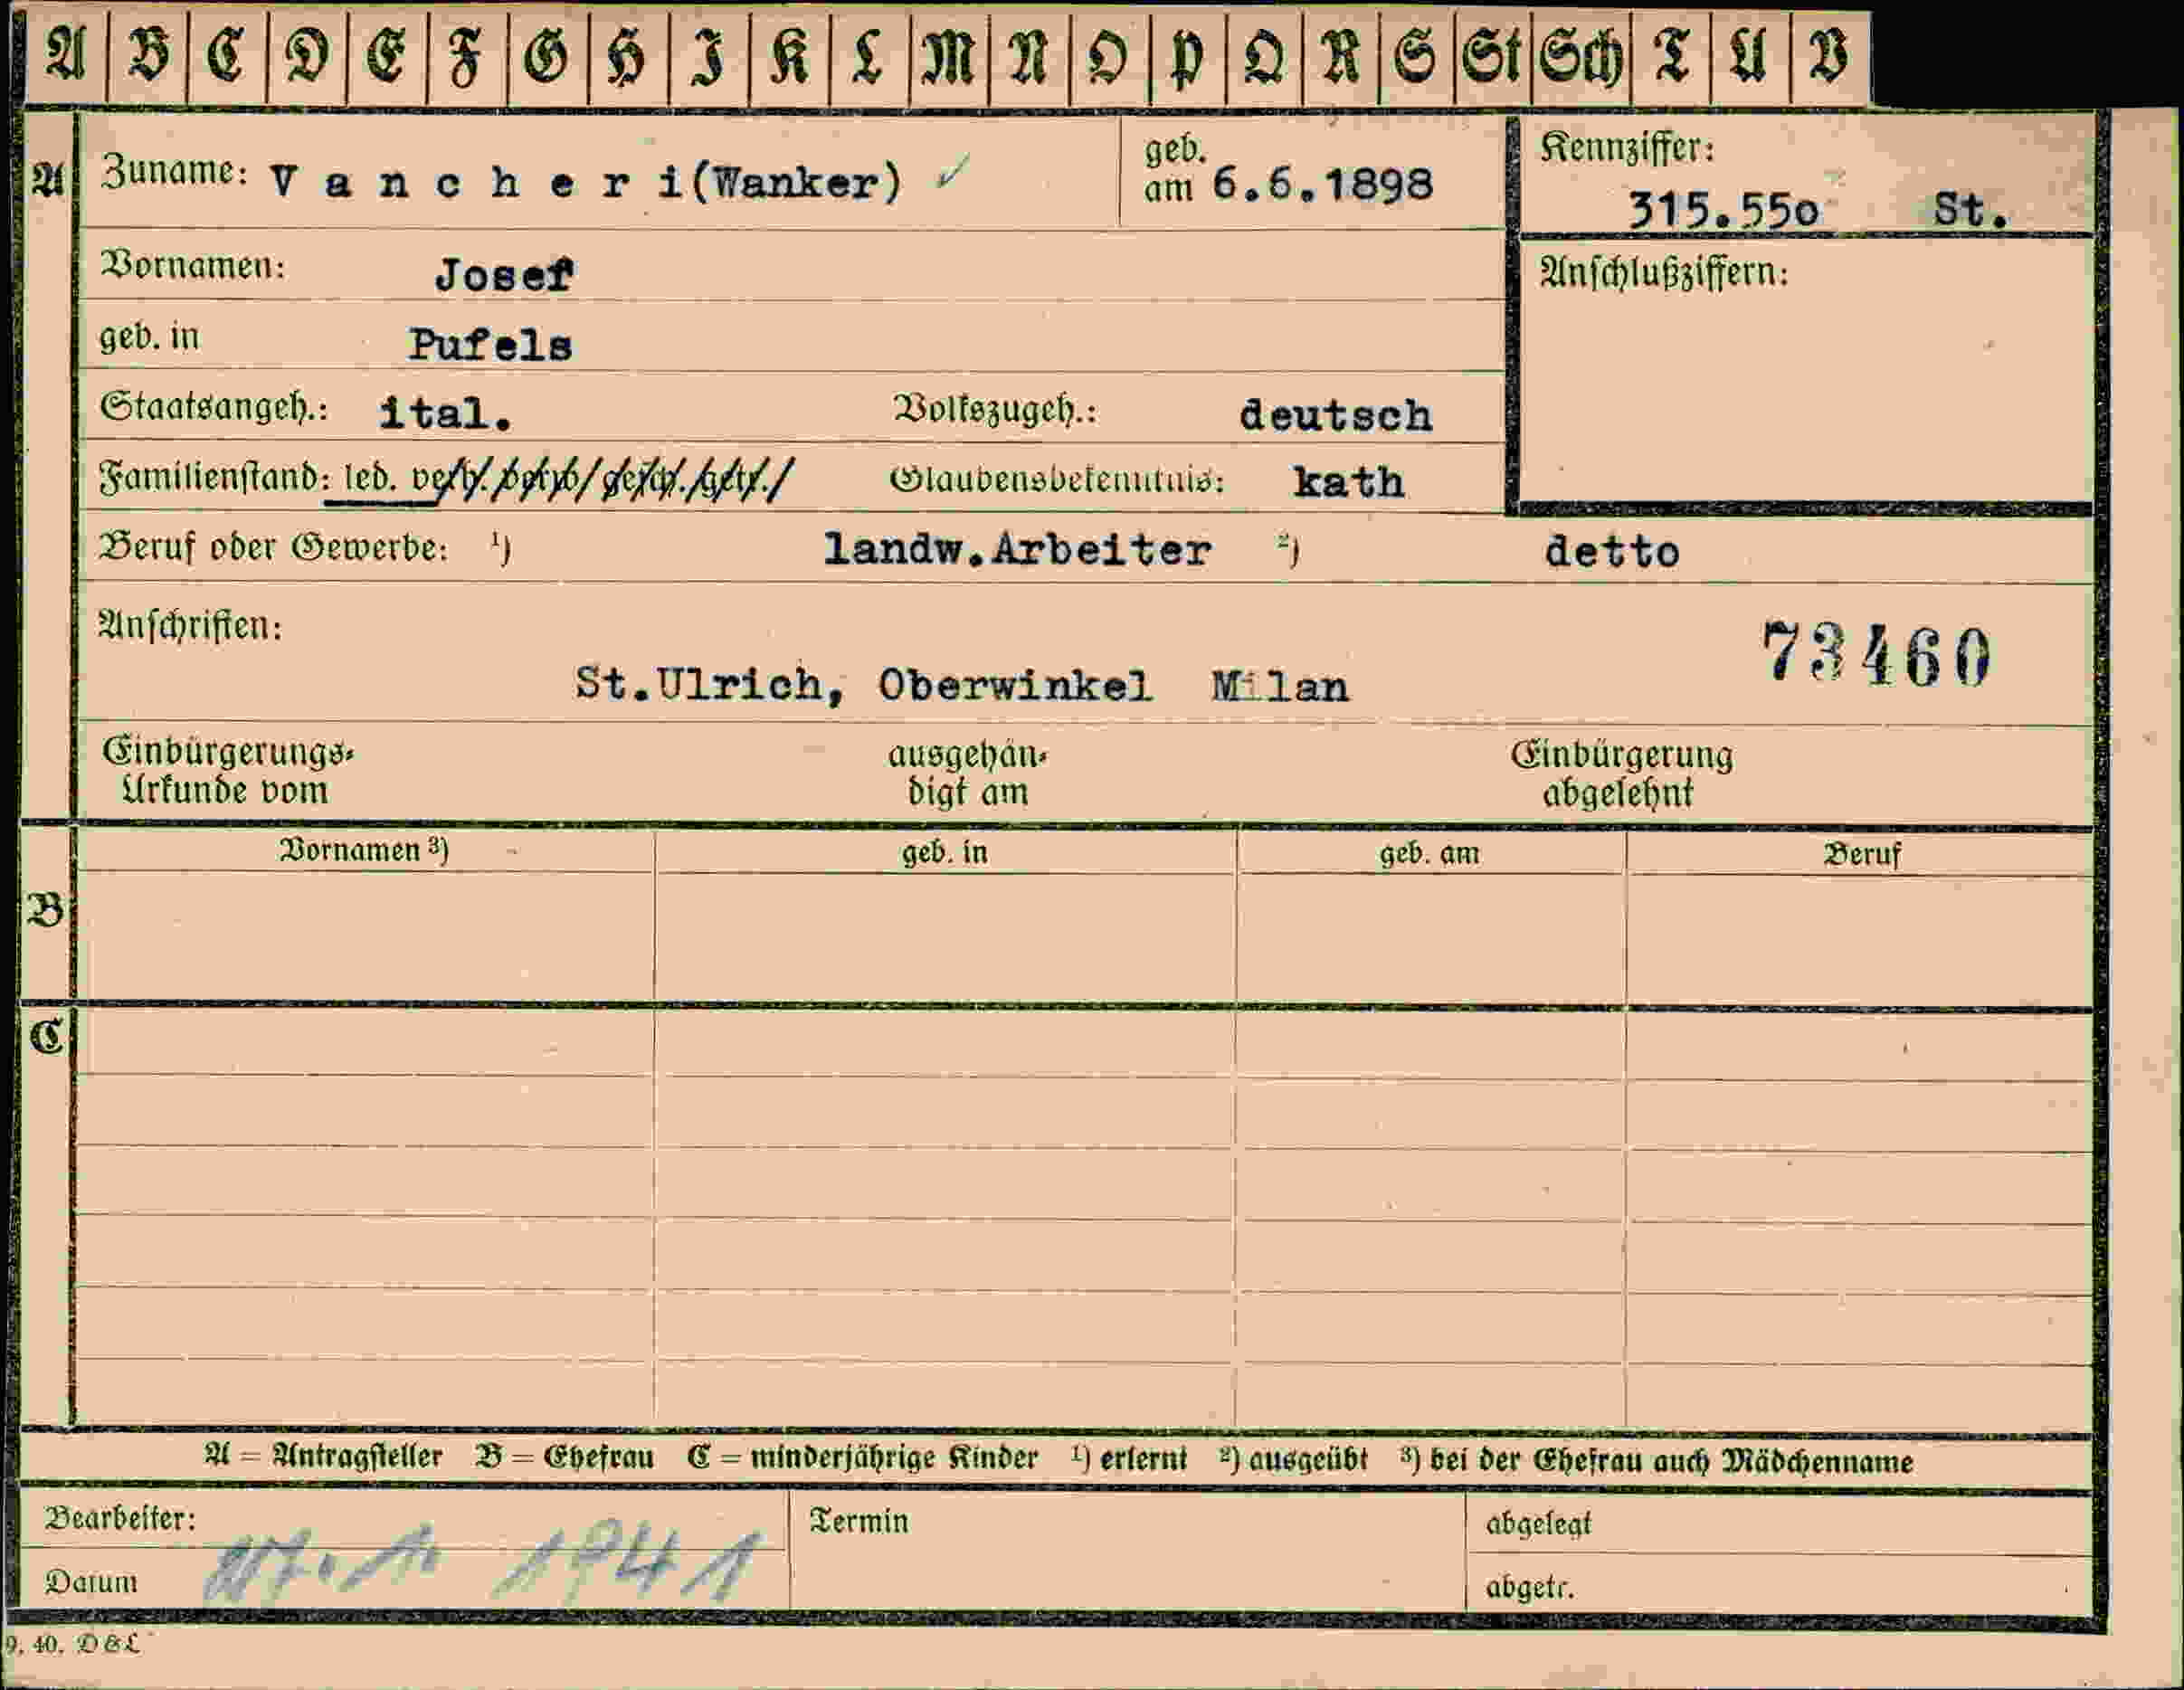 A B C D E F G H I K L M N O P Q R S St Sch T U V
A Zuname: V a n c h e r i (Wanker) ✓ geb. am 6.6.1898 Kennziffer: 315.55o St.
Vornamen: Josef Anschlußziffern:
geb. in Pufels
Staatsangeh.: ital. Volkszugeh.: deutsch
Familienstand: led. verh. verw. gesch. getr. Glaubensbekenntnis: kath
Beruf oder Gewerbe: ¹) landw.Arbeiter ²) detto
Anschriften: 73460
St.Ulrich, Oberwinkel Milan
Einbürgerungs- ausgehän- Einbürgerung
Urkunde vom digt am abgelehnt
Vornamen ³) geb. in geb. am Beruf
B
C
A = Antragsteller B = Ehefrau C = minderjährige Kinder ¹) erlernt ²) ausgeübt ³) bei der Ehefrau auch Mädchenname
Bearbeiter: Termin abgelegt
Datum 1941 abgetr.
9. 40. D & L